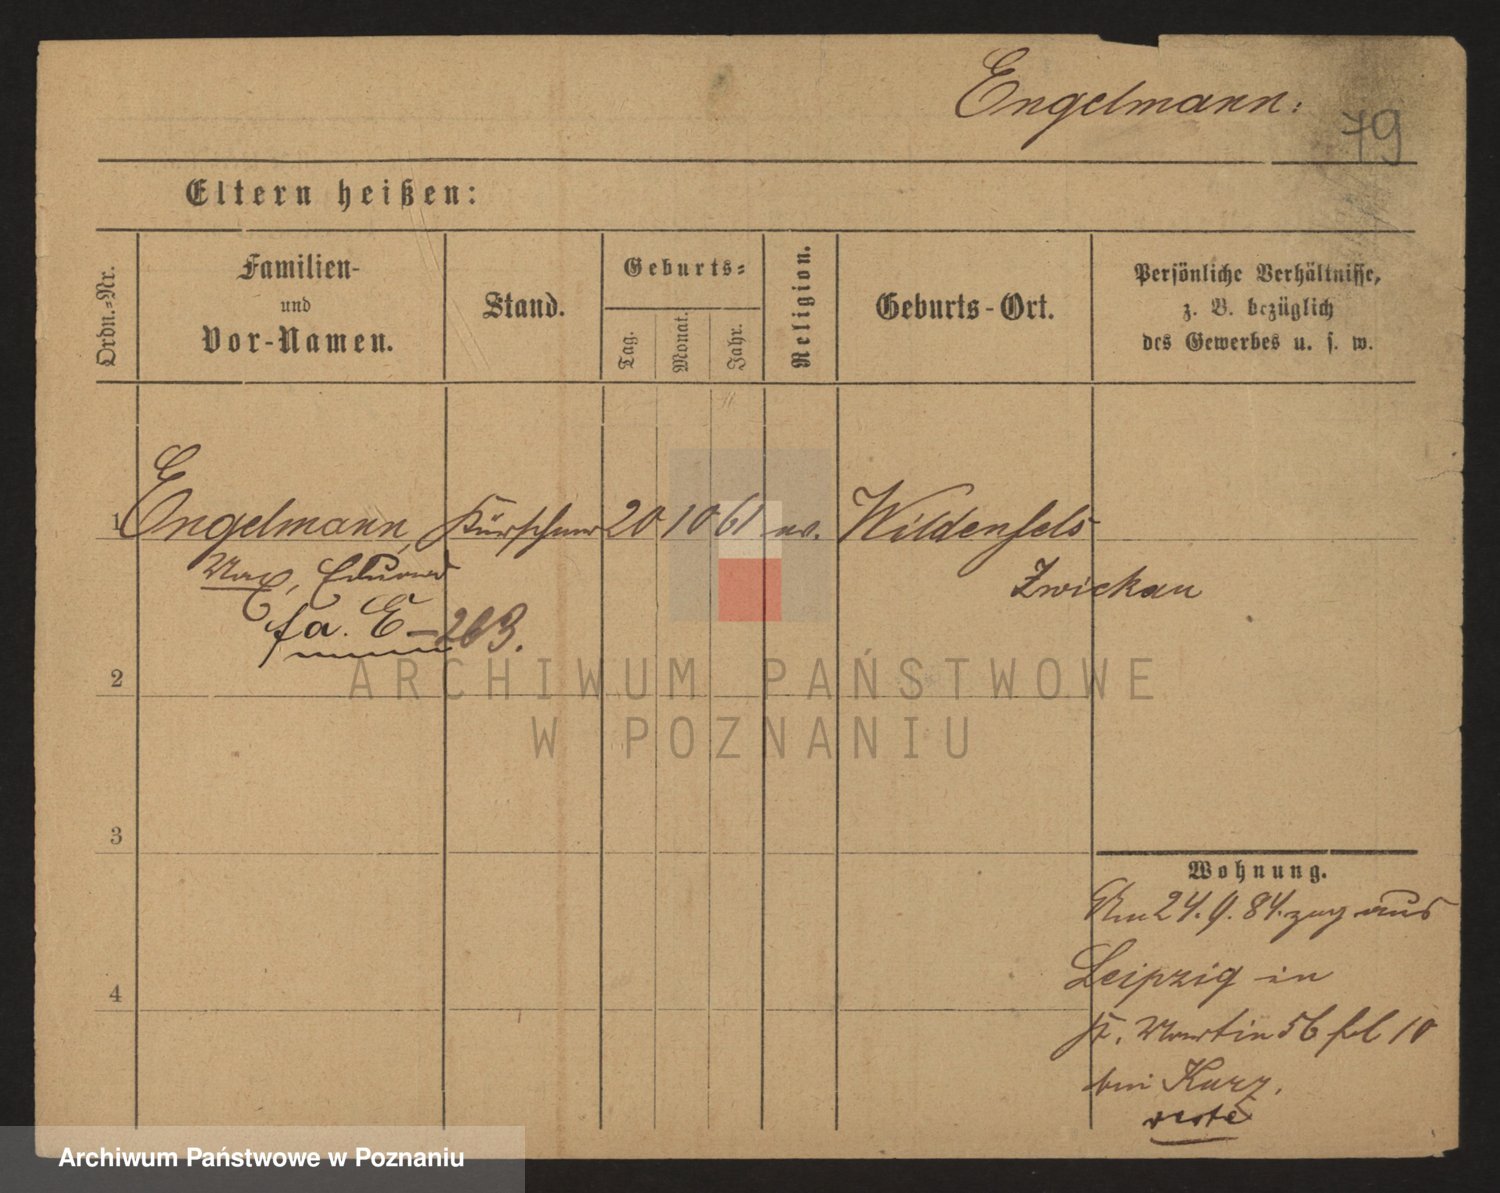 Engelmann.
79
Eltern heißen:
Ordn.-Nr.
Familien-
und
Vor-Namen.
Stand.
Geburts-
Tag.
Monat.
Jahr.
Religion.
Geburts-Ort.
Persönliche Verhältnisse,
z. B. bezüglich
des Gewerbes u. s. w.
1 Engelmann, Kürschner 20 10 61 ev. Wildenfels
Max, Eduard
Zwickau
fa. E - 263.
2
3
4
Wohnung.
Am 24. 9. 84. zog aus
Leipzig in
St. Martin 56 10
bei Kurz.
verte
ARCHIWUM PAŃSTWOWE
W POZNANIU
Archiwum Państwowe w Poznaniu